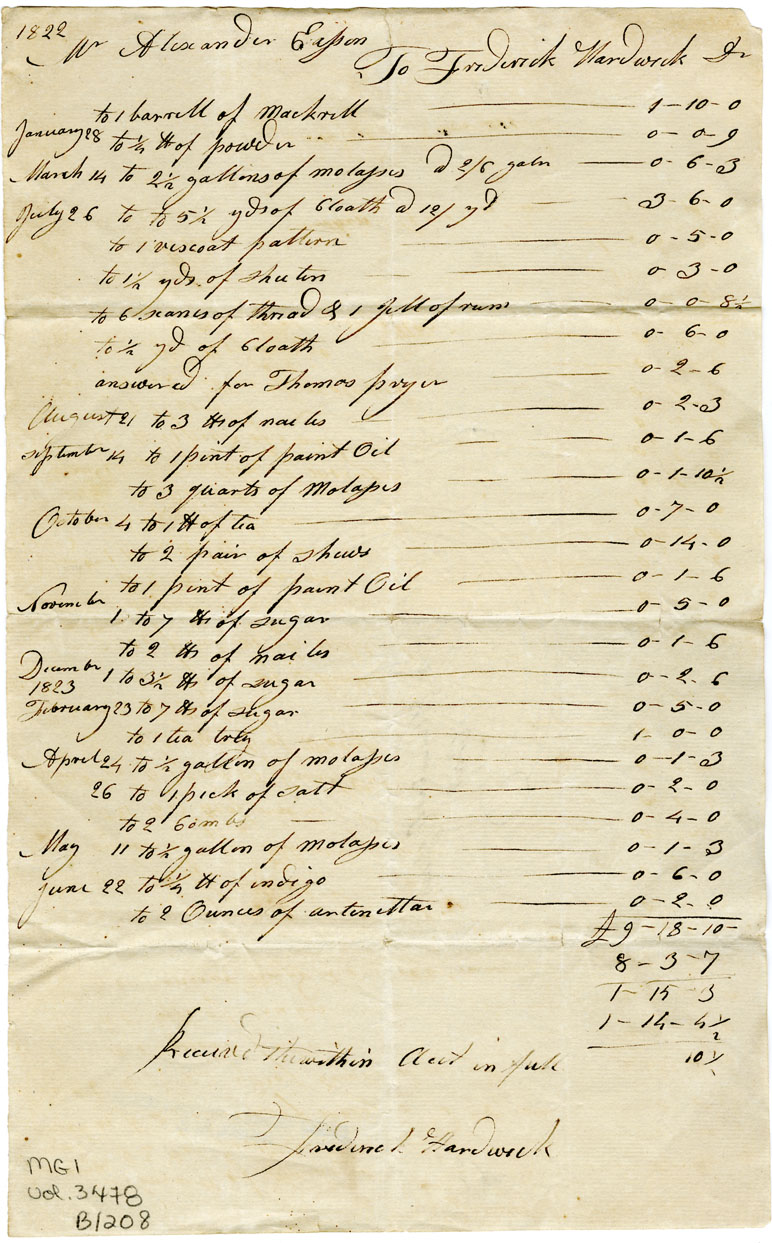 1822
Mr Alexander Easson
To Frederick Hardwick Dr
to 1 barrell of Mackrell 1-10-0
January 28 to ¼ ℔ of powder 0-0-9
March 14 to 2½ gallons of molasses a 2/6 galn 0-6-3
July 26 to to 5½ yds of Cloath a 12/ yd 3-6-0
to 1 vescoat pattern 0-5-0
to 1½ yds of sheeten 0-3-0
to 6 scanes of thread & 1 Jill of rum 0-0-8½
to ½ yd of Cloath 0-6-0
answered for Thomas pryer 0-2-6
August 21 to 3 ℔s of nailes 0-2-3
September 14 to 1 pint of paint Oil 0-1-6
to 3 quarts of Molasses 0-1-10½
October 4 to 1 ℔ of tea 0-7-0
to 2 pair of shews 0-14-0
to 1 pint of paint Oil 0-1-6
November 1 to 7 ℔s of sugar 0-5-0
to 2 ℔s of nailes 0-1-6
December 1 to 3½ ℔s of sugar 0-2-6
1823
February 23 to 7 ℔s of sugar 0-5-0
to 1 tea trey 1-0-0
April 24 to ½ gallon of molasses 0-1-3
26 to 1 peck of salt 0-2-0
to 2 Combs 0-4-0
May 11 to ½ gallon of molasses 0-1-3
June 22 to ¼ ℔ of indigo 0-6-0
to 2 Ounces of antinettar 0-2-0
£9-18-10-
8-3-7
1-15 3
1-14-4½
10½
Received the within Acct in full
Frederick Hardwick
MG1
Vol. 3478
B/208